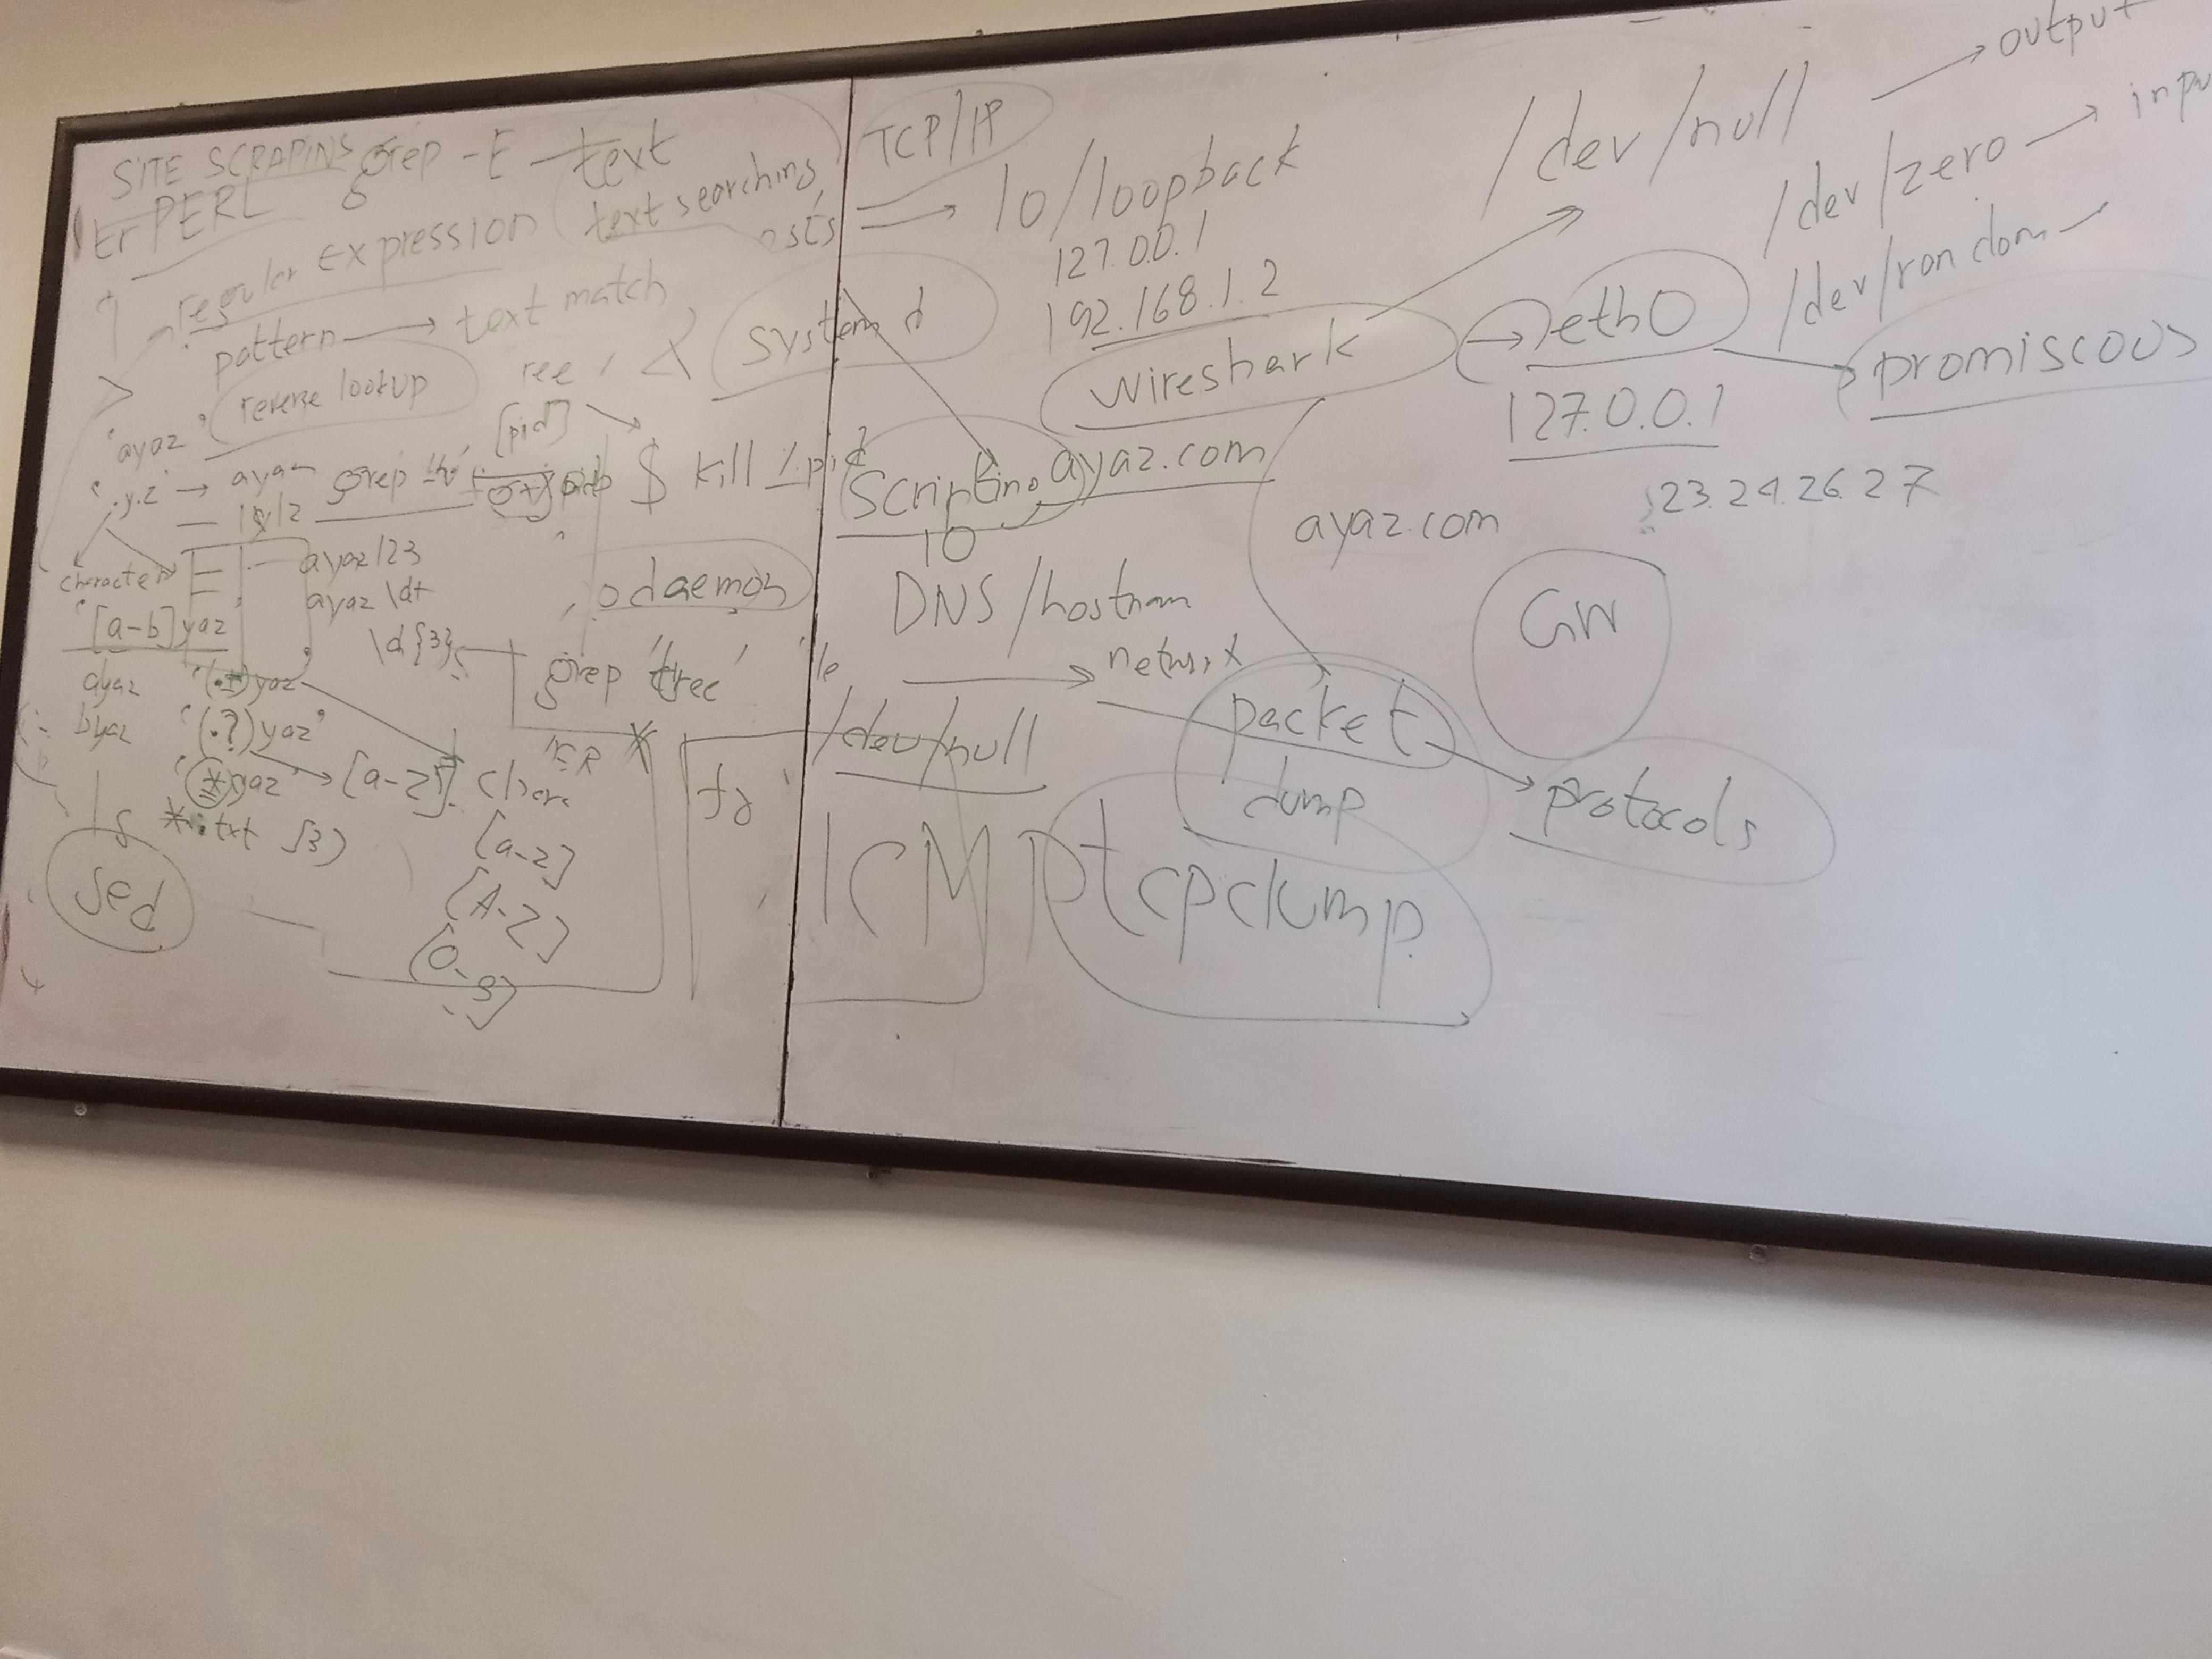 SITE SCRAPING grep -E text
PERL
text searching
regular Expression
pattern → text match
reverse lookup
systemd
[pid]
'ayaz'
'.y.z' → ayaz
grep
$ kill
character
ayaz123
ayaz \d+
\d{3}
[a-b]yaz
ayaz
byaz
'(.+)yaz'
'(.?)yaz'
'*yaz' → [a-z]
*.txt
sed
[a-z]
[A-Z]
[0-9]
daemon
grep 'tree'
TCP/IP
→ lo/loopback
127.0.0.1
192.168.1.2
wireshark
Scripting
ayaz.com
10
DNS/hostnam
→ network
/dev/null
ICMP
tcpdump
packet
dump
→ protocols
/dev/null → output
/dev/zero → inpu
/dev/random
→ eth0
promiscous
127.0.0.1
ayaz.com
23.24.26.27
GW